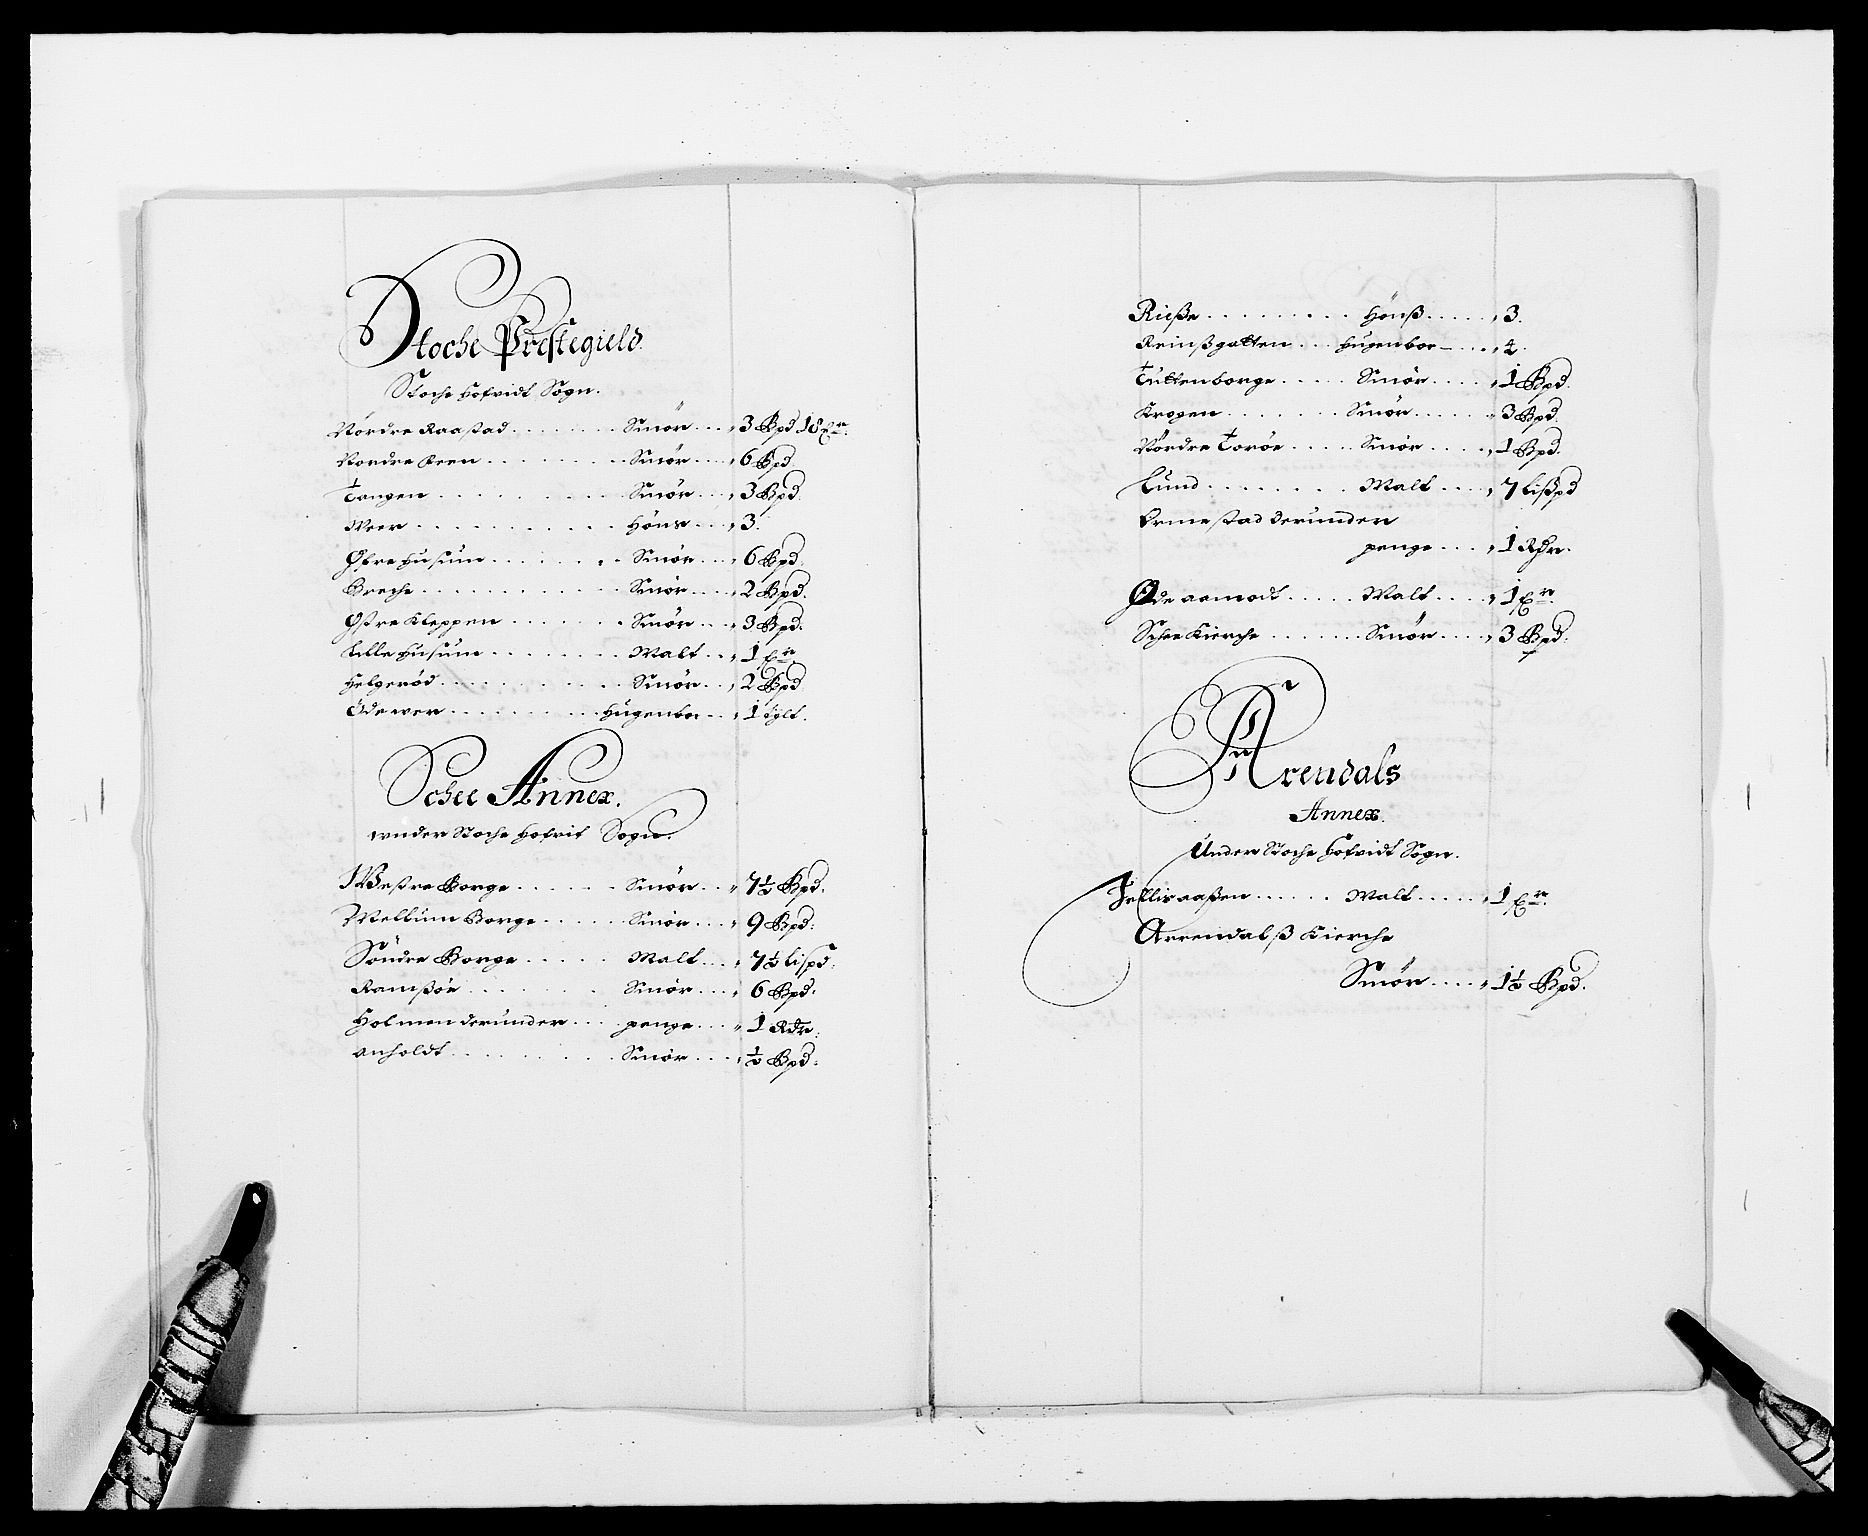 Stoche Prestegield.
Stoche Hofvidt Sogn.
Nordre Raastad . . . . . . . Smör . . . 3 Bpd 18 Er.
Nordre Reen . . . . . . . Smör . . . 6 Bpd.
Tangen . . . . . . . Smör . . . 3 Bpd.
Weer . . . . . . . Höns . . . 3.
Øfre Husum . . . . . . . Smör . . . 6 Bpd.
Breche . . . . . . . Smör . . . 2 Bpd.
Østre Kleppen . . . . . . . Smör . . . 3 Bpd.
Lille Husum . . . . . . . Malt . . . 1 Er.
Helgeröd . . . . . . . Smör . . . 2 Bpd
Ödewer . . . . . . . Hugenbor . . . 1 tylt.
Schee Annex.
wnder Stoche Hofvit Sogn.
Westre Borge . . . . . . Smör . . . 7½ Bpd.
Mellum Borge . . . . . Smör . . . 9 Bpd:
Söndre Borge . . . . . Malt . . . 7½ Lispd:
Ramsöe . . . . . . . Smör . . . 6 Bpd.
Holmen derunder . . . penge . . . 1 Rdr:
Anholdt . . . . . . . Smör . . . ½ Bpd:
Rieße . . . . . . . . . Hönß . . . . . 3.
Reinßgatten . . . Hugenbor . . . 4.
Tuttenborge . . . . . Smör . . . . 1 Bpd.
Krogen . . . . . . . Smör . . . . . 3 Bpd.
Nordre Toröe . . . . . Smör . . . . 1 Bpd.
Lund . . . . . . . . Malt . . . . 7 Lißpd
Ormestad derunder
penge . . . 1 Rdr.
Øde aamodt . . . . . Malt . . . . 1 Er.
Schee Kierche . . . . . . Smör . . . . 3 Bpd:
Arendals
Annex.
Under Stoche Hofvidt Sogn.
Jellisaaßen . . . . . . Malt . . . . . 1 Er.
Arrendalß Kierche
Smör . . . . 1½ Bpd.